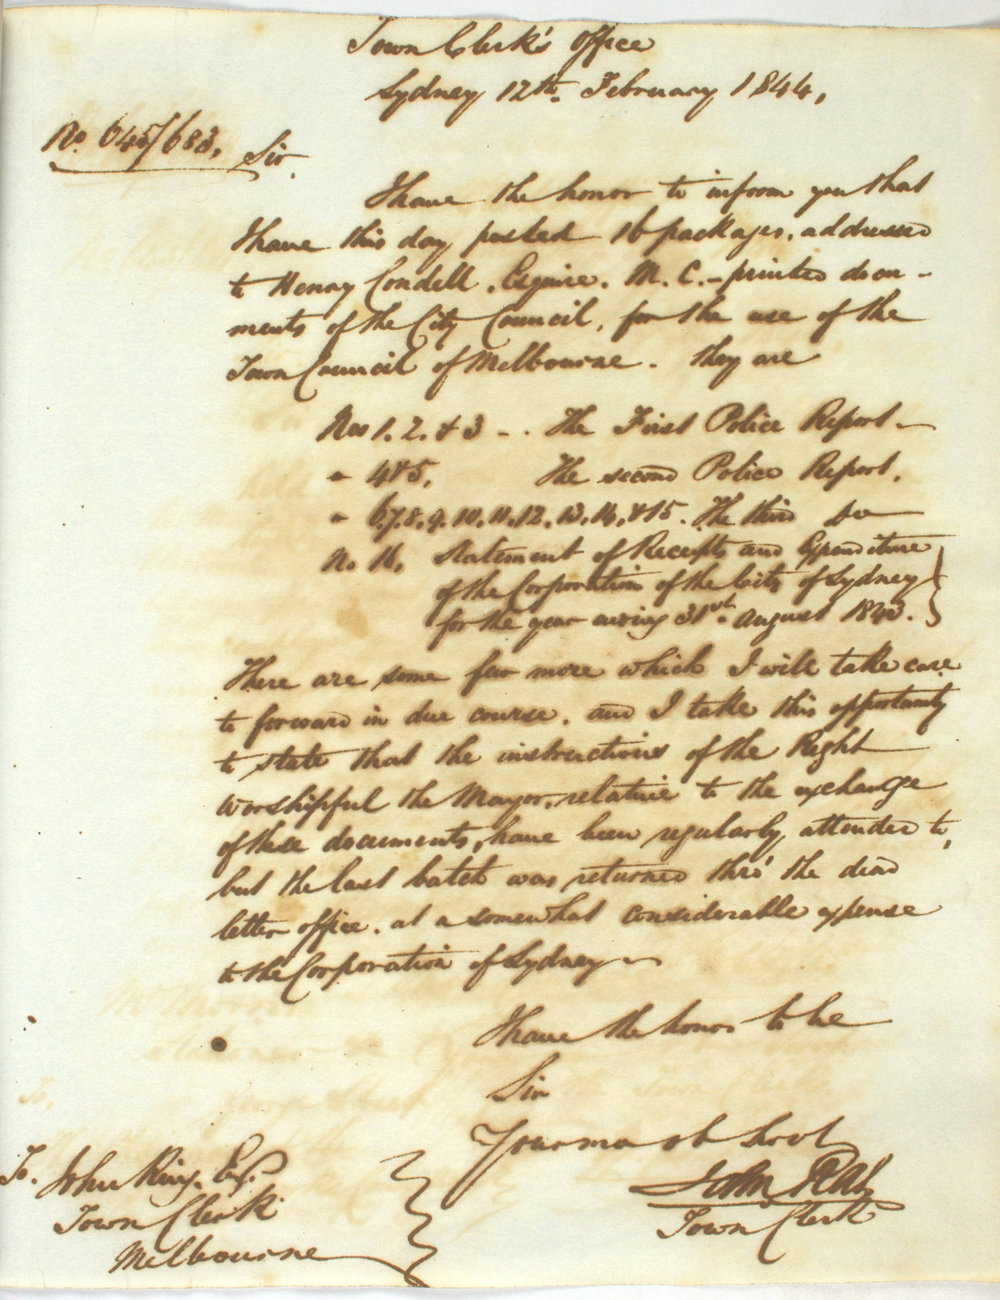 Town Clerk's Office
Sydney 12th. February 1844,
No. 645/683,
Sir,
I have the honor to inform you that
I have this day posted 16 packages, addressed
to Henry Condell, Esquire. M. C. - printed docu-
ments of the City Council, for the use of the
Town Council of Melbourne. They are
Nos 1. 2. & 3 - . The First Police Report -
" 4 & 5, The second Police Report,
" 6.7.8.9.10.11.12.13.14. & 15. The third do
No 16, Statement of Receipts and Expenditure
of the Corporation of the City of Sydney
for the year ending 31st. August 1843.
There are some few more which I will take care
to forward in due course, and I take this opportunity
to state that the instructions of the Right
Worshipful the Mayor, relative to the exchange
of these documents, have been regularly attended to,
but the last batch was returned thro' the dead
letter office, at a somewhat considerable expense
to the Corporation of Sydney
I have the honor to be
Sir
Your mo ob Servt
John
Town Clerk
To. John King, Esq.
Town Clerk
Melbourne